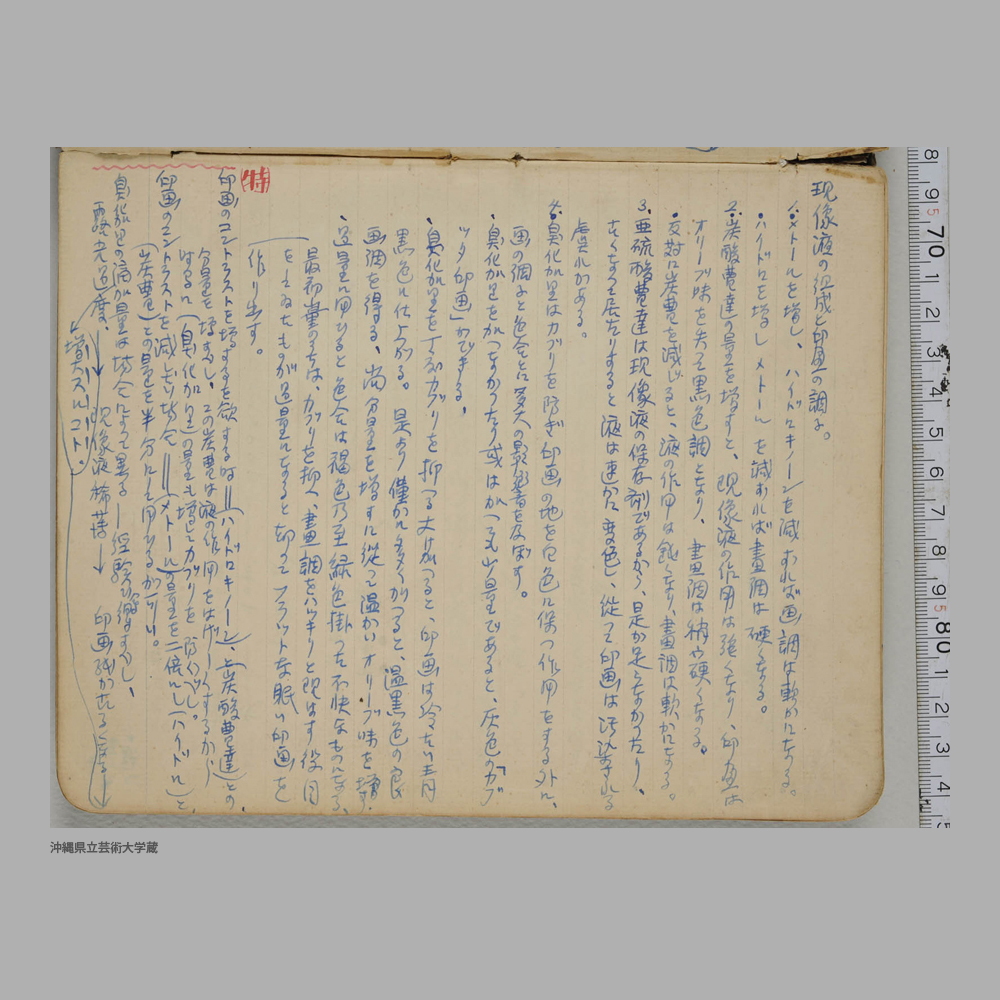 現像液の組成と印画の調子。
1. メトールを増し、ハイドロキノーンを減ずれば画調は軟かになる。
・ハイドロを増しメトールを減ずれば畫調は硬くなる。
2. 炭酸曹達の量を増すと、現像液の作用は強くなり、印画は
オリーブ味を失って黒色調となり、畫調は稍々硬くなる。
・反対に炭曹を減じると、液の作用は鈍くなり、畫調は軟かになる。
3. 亜硫酸曹達は現像液の保存剤であるから、是が足らなかったり、
古くなって居たりすると液は速かに変色し、従って印画は汚染される
虞れがある。
4. 臭化加里はカブリを防ぎ印画の地を白色に保つ作用をする外に、
画の調子と色合とに多大の影響を及ぼす。
・臭化加里をかへなかったり或はかへても少量であると、灰色の「カブ
ッタ印画」ができる。
・臭化加里を丁度カブリを抑へる丈加へると、印画は冷たい青
黒色に仕上がる。是より僅か多く加へると、温黒色の良
画調を得る、尚分量を増すに従って温かいオリーブ味を増す
・過量に用ひると色合は褐色乃至緑色掛った不快なものになる、
最初量のうちは、カブリを抑へ、畫調をハッキリと現はす役目
をしゐたものが過量になると却ってフラットな眠い印画を
作り出す。
特
印画のコントラストを増すを欲するなら=(ハイドロキノーン)、と(炭酸曹達)との、
分量を増すべし、この炭曹は液の作用をはげしくするから
はるに(臭化加里)の量も増してカブリを防ぐべし。
印画のコントラストを減じたい場合=(メトール)の量を二倍にし(ハイドル)と
(炭曹)との量を半分にして用ひるがいい。
臭加里の滴加量は場合によって異る―経験の増すべし、
露光過度、→現像液稀薄→印画残かさねる度る→
増大スルコト。
8 9 70 1 2 3 4 5 6 7 8 9 80 1 2 3 4 5
沖縄県立芸術大学蔵